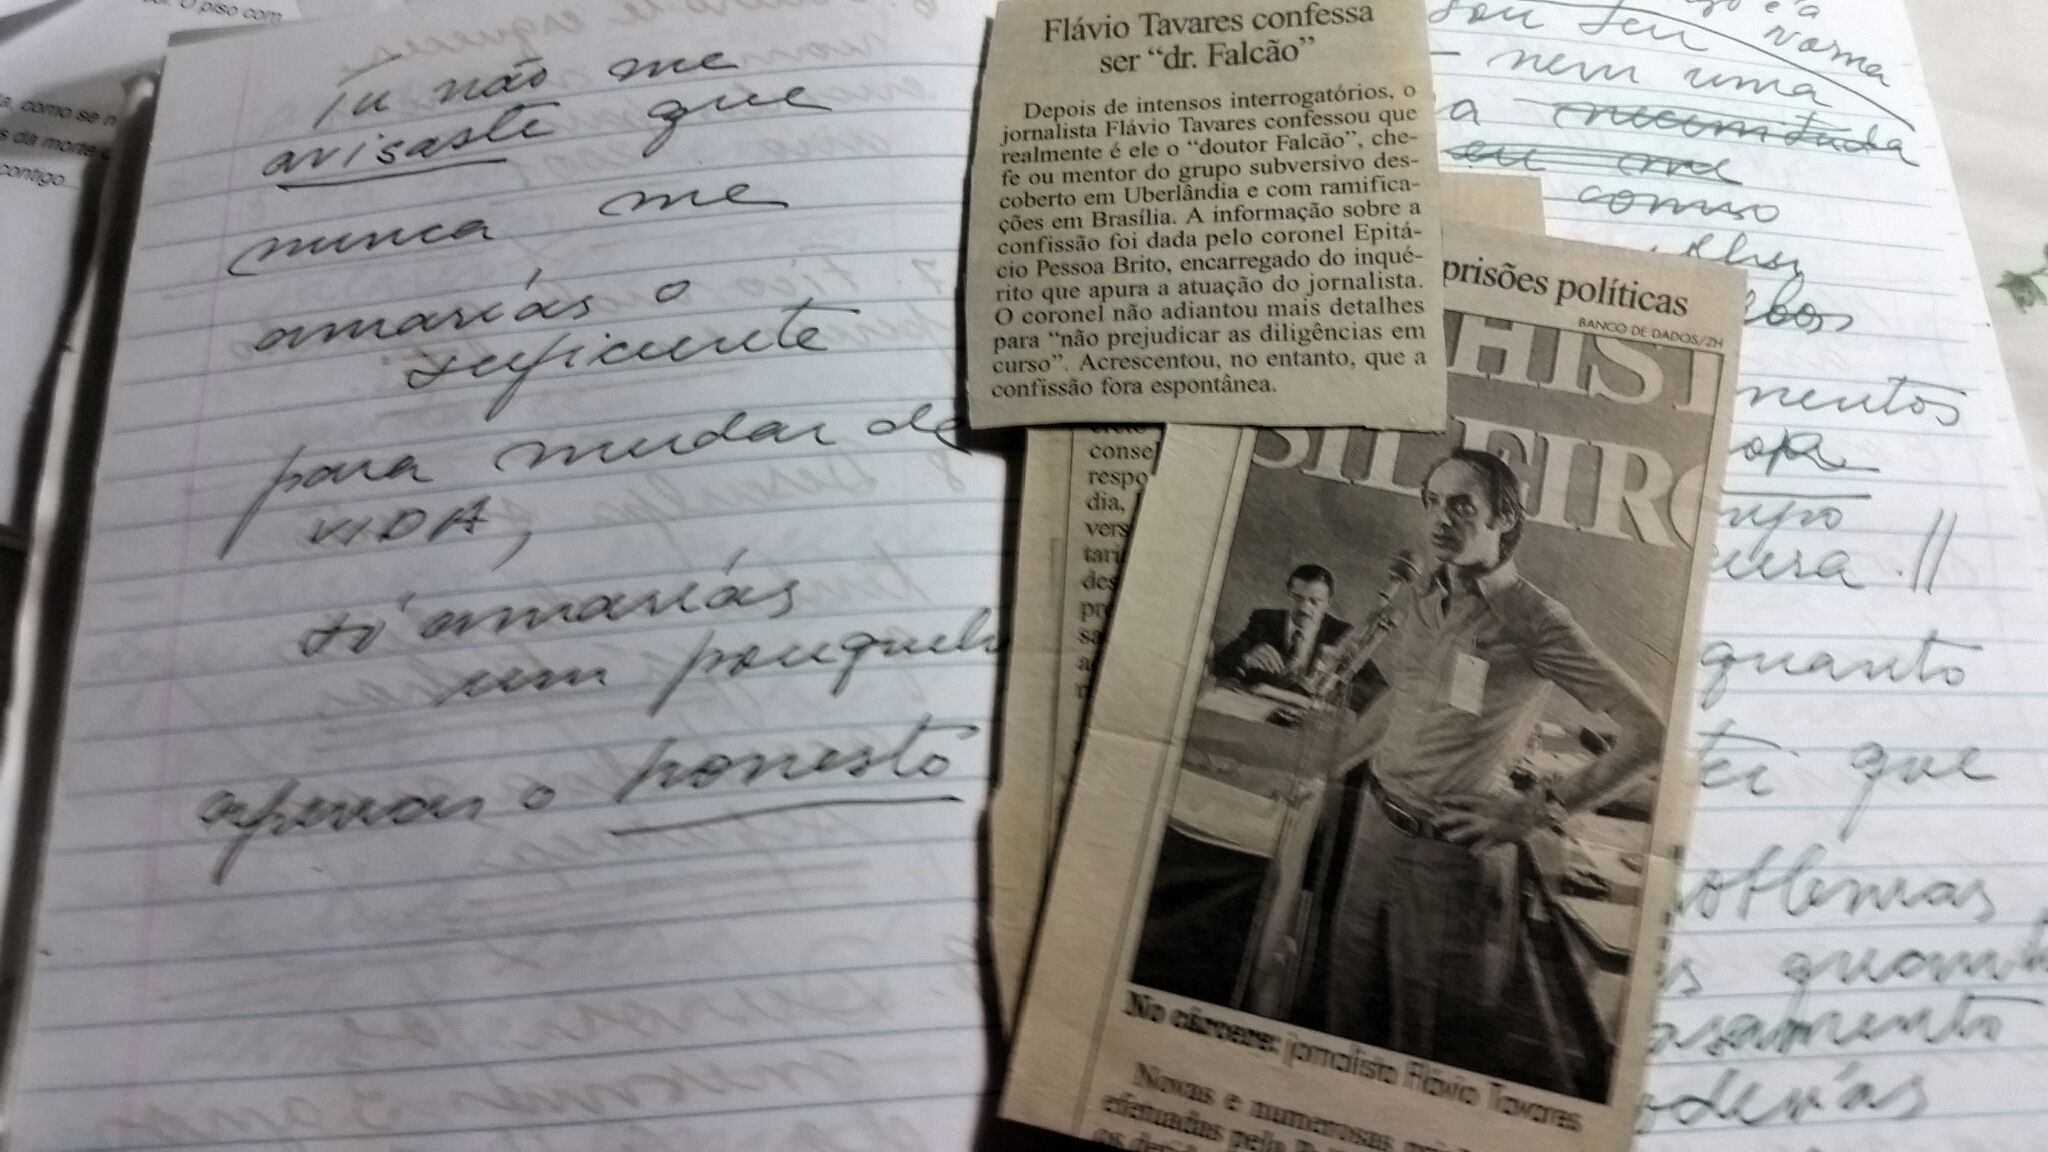 . O piso com
a, como se n
s da morte
contigo...
Tu não me
avisaste que
nunca me
amarías o
suficiente
para mudar de
VIDA,
só amarías
um pouquch
apenas o honesto
Flávio Tavares confessa
ser “dr. Falcão”
Depois de intensos interrogatórios, o
jornalista Flávio Tavares confessou que
realmente é ele o “doutor Falcão”, che-
fe ou mentor do grupo subversivo des-
coberto em Uberlândia e com ramifica-
ções em Brasília. A informação sobre a
confissão foi dada pelo coronel Epitá-
cio Pessoa Brito, encarregado do inqué-
rito que apura a atuação do jornalista.
O coronel não adiantou mais detalhes
para “não prejudicar as diligências em
curso”. Acrescentou, no entanto, que a
confissão fora espontânea.
conse
respo
dia,
vers
tari
des
pr
sa
a
prisões políticas
BANCO DE DADOS/ZH
HIST
SILEIRO
No cárcere: jornalista Flávio Tavares
Novas e numerosas
efetuadas pela
sou seu
Norma
nem uma
a
comiso
mentos
opa
quanto
tei que
roblemas
s quant
asamento
oderás